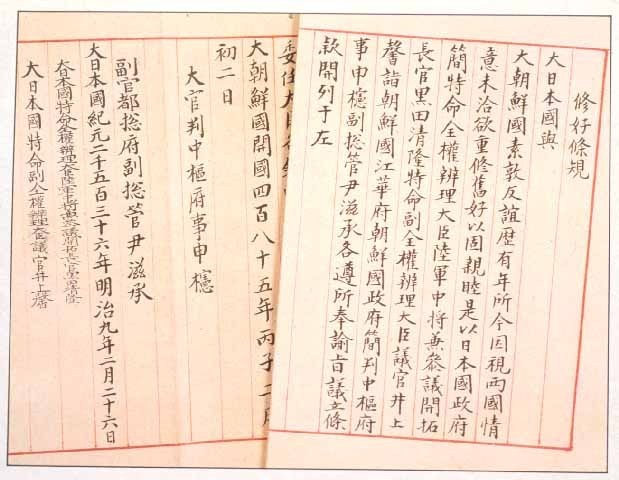 修好條規
大日本國與
大朝鮮國素敦友誼歷有年所今因視兩國情
意未洽欲重修舊好以固親睦是以日本國政府
簡特命全權辨理大臣陸軍中將兼參議開拓
長官黑田清隆特命副全權辨理大臣議官井上
馨詣朝鮮國江華府朝鮮國政府簡判中樞府
事申櫶副總管尹滋承各遵所奉諭旨議立條
款開列于左
大朝鮮國開國四百八十五年丙子二月
初二日
大官判中樞府事申櫶
副官都総府副総管尹滋承
大日本國紀元二千五百三十六年明治九年二月二十六日
大日本國特命全權辨理大臣陸軍中將兼參議開拓長官黑田清隆
大日本國特命副全權辨理大臣議官井上馨